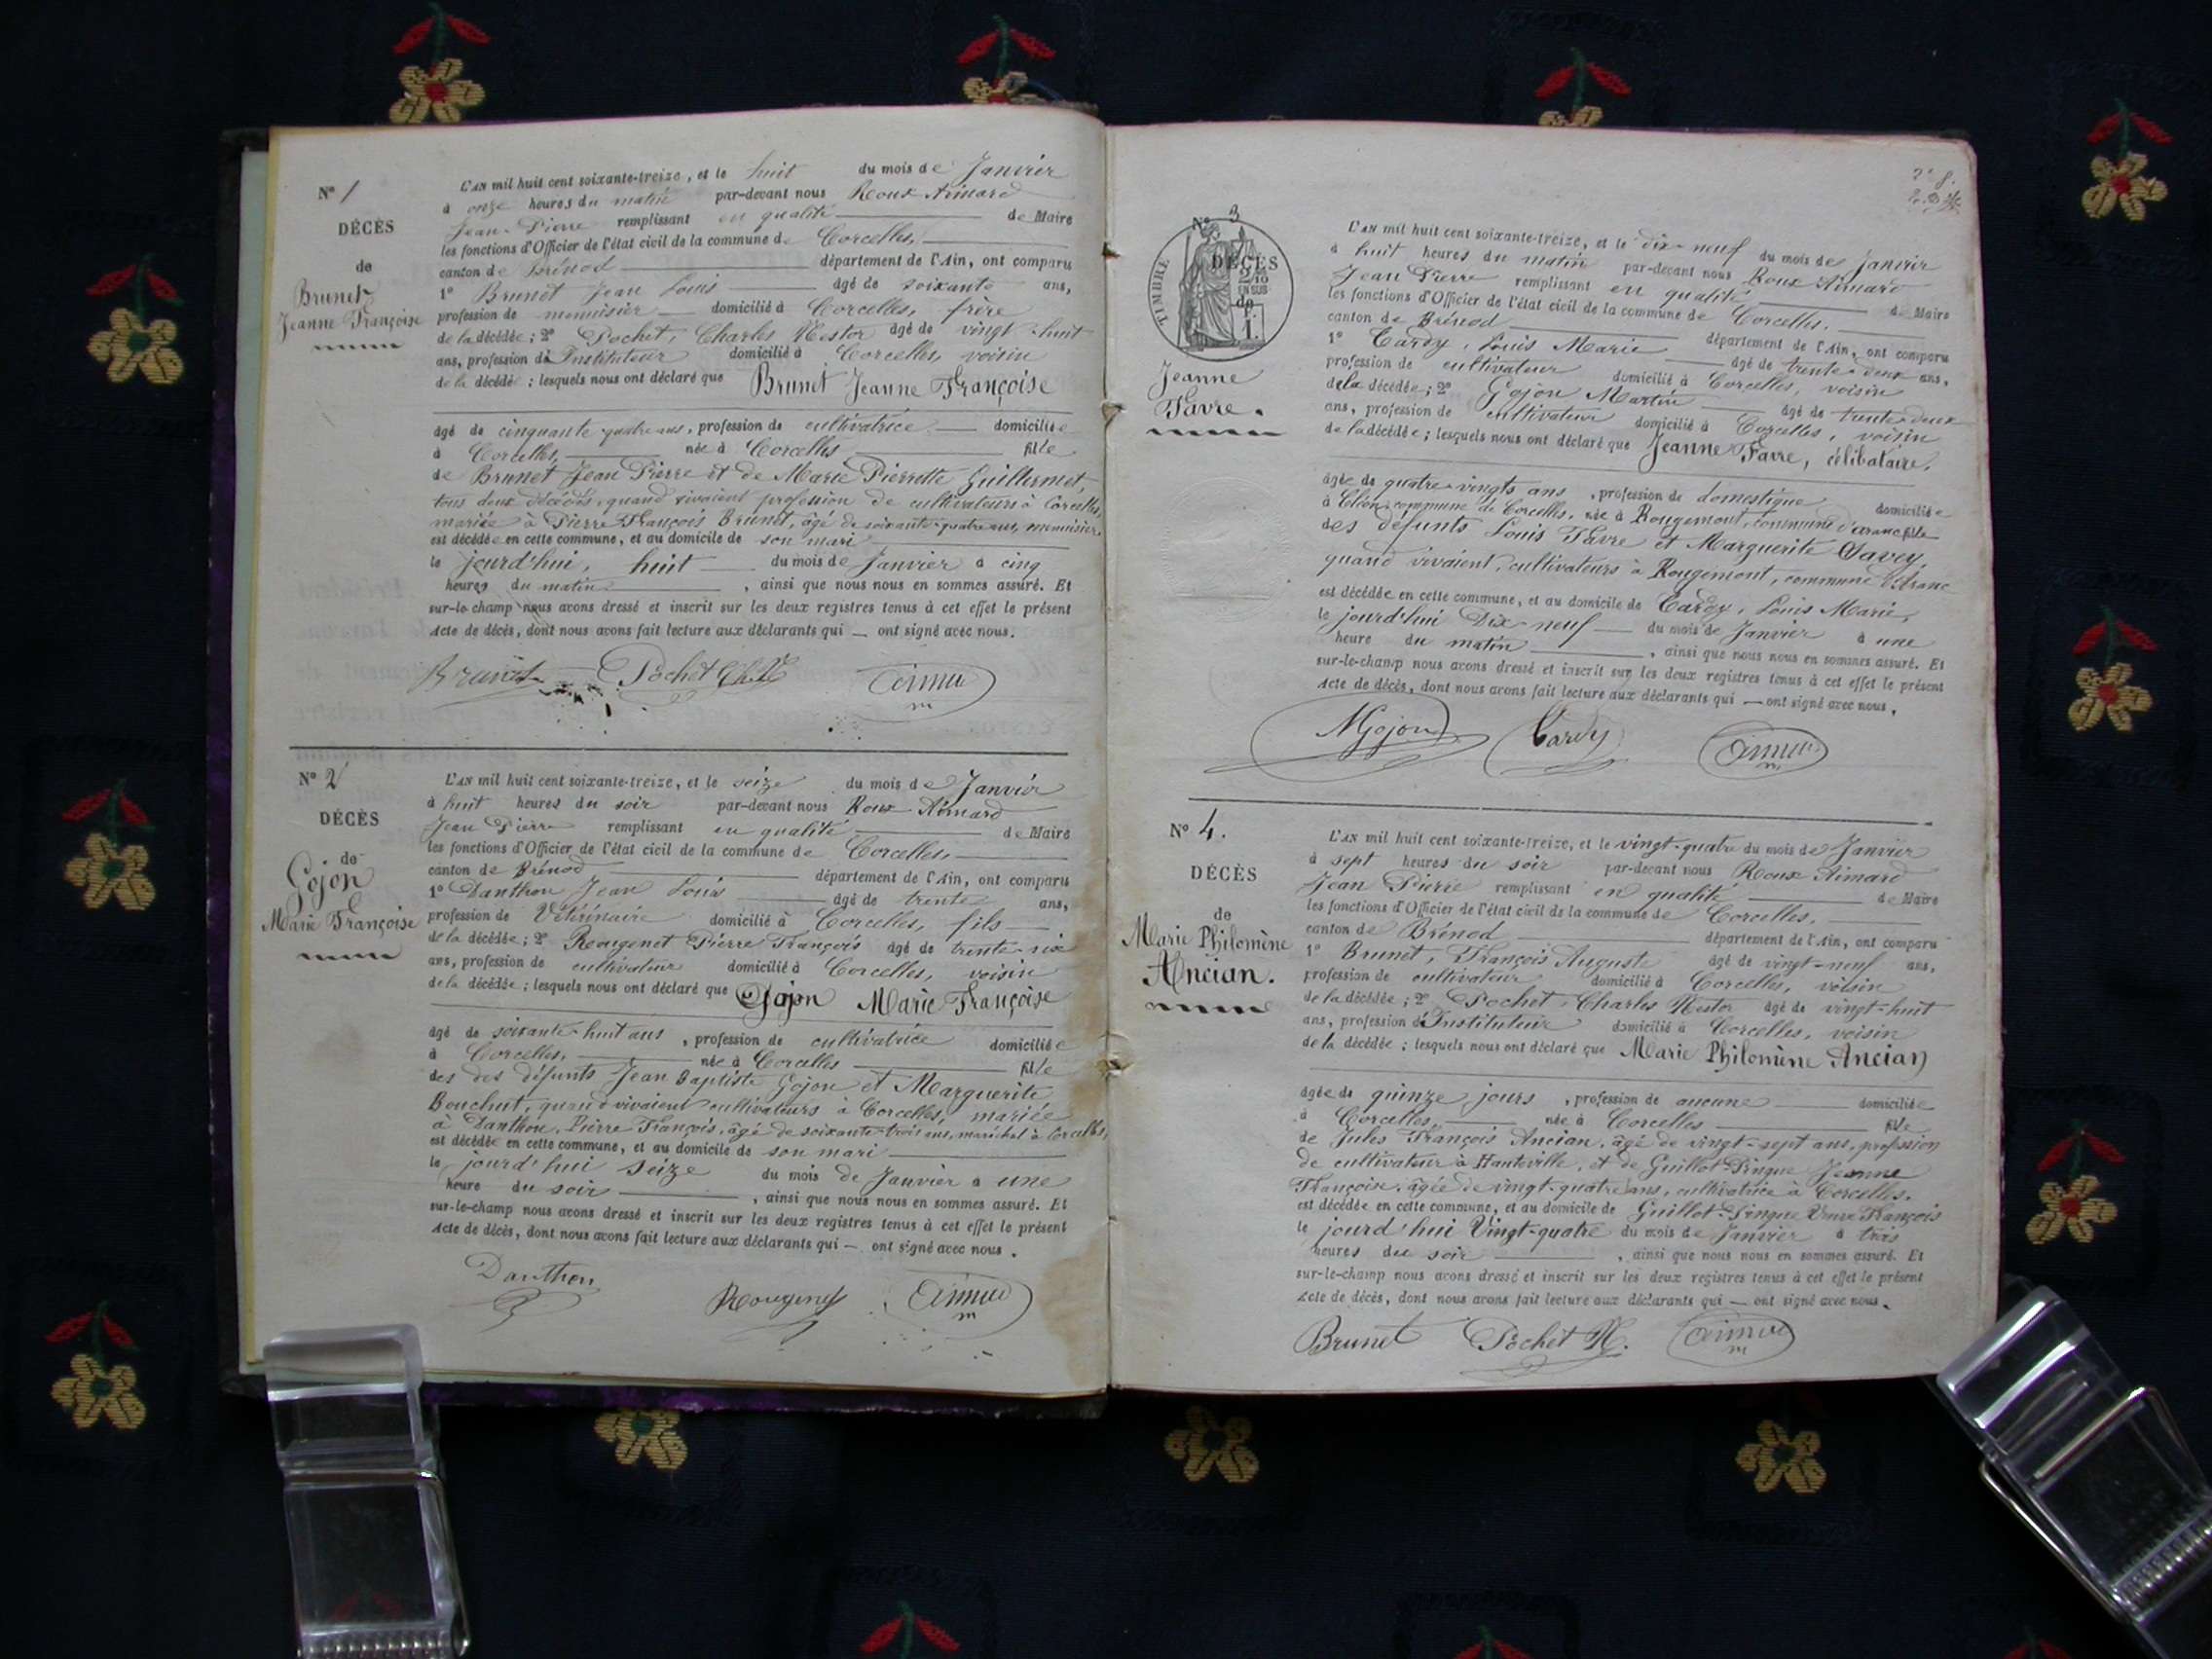 N° 1
DÉCÈS
de
Brunet
Jeanne Françoise
L'AN mil huit cent soixante-treize, et le huit du mois de Janvier
à onze heures du matin par-devant nous Roux Aimard
Jean-Pierre remplissant en qualité de Maire
les fonctions d'Officier de l'état civil de la commune de Corcelles,
canton de Brénod département de l'Ain, ont comparu
1° Brunet Jean Louis âgé de soixante ans,
profession de menuisier domicilié à Corcelles, frère
de la décédée ; 2° Pochet, Charles Nestor âgé de vingt-huit
ans, profession d'Instituteur domicilié à Corcelles, voisin
de la décédée ; lesquels nous ont déclaré que Brunet Jeanne Françoise
âgé de cinquante quatre ans, profession de cultivatrice domiciliée
à Corcelles, née à Corcelles fille
de Brunet Jean Pierre et de Marie Pierrette Guillermet,
tous deux décédés, quand vivaient profession de cultivateurs à Corcelles,
mariée à Pierre François Brunet, âgé de soixante-quatre ans, menuisier.
est décédée en cette commune, et au domicile de son mari
le jourd'hui, huit du mois de Janvier à cinq
heures du matin , ainsi que nous nous en sommes assuré. Et
sur-le-champ nous avons dressé et inscrit sur les deux registres tenus à cet effet le présent
Acte de décès, dont nous avons fait lecture aux déclarants qui — ont signé avec nous.
Brunet Pochet
N° 2
DÉCÈS
de
Gojon
Marie Françoise
L'AN mil huit cent soixante-treize, et le seize du mois de Janvier
à huit heures du soir par-devant nous Roux Aimard
Jean Pierre remplissant en qualité de Maire
les fonctions d'Officier de l'état civil de la commune de Corcelles,
canton de Brénod département de l'Ain, ont comparu
1° Danthon Jean Louis âgé de trente ans,
profession de Vétérinaire domicilié à Corcelles, fils
de la décédée ; 2° Rougenet Pierre François âgé de trente-six
ans, profession de cultivateur domicilié à Corcelles, voisin
de la décédée ; lesquels nous ont déclaré que Gojon Marie Françoise
âgé de soixante-huit ans, profession de cultivatrice domiciliée
à Corcelles, née à Corcelles fille
des des défunts Jean Baptiste Gojon et Marguerite
Bouchut, quand vivaient cultivateurs à Corcelles, mariée
à Danthon, Pierre François, âgé de soixante-trois ans, maréchal à Corcelles,
est décédée en cette commune, et au domicile de son mari
le jourd'hui seize du mois de Janvier à une
heure du soir , ainsi que nous nous en sommes assuré. Et
sur-le-champ nous avons dressé et inscrit sur les deux registres tenus à cet effet le présent
Acte de décès, dont nous avons fait lecture aux déclarants qui — ont signé avec nous.
Danthon Rougenet
N° 3
TIMBRE
DÉCÈS
2/10
EN SUS
de
Jeanne
Favre.
L'AN mil huit cent soixante-treize, et le dix-neuf du mois de Janvier
à huit heures du matin par-devant nous Roux Aimard
Jean Pierre remplissant en qualité de Maire
les fonctions d'Officier de l'état civil de la commune de Corcelles.
canton de Brénod département de l'Ain, ont comparu
1° Cardy, Louis Marie âgé de trente-deux ans,
profession de cultivateur domicilié à Corcelles, voisin
de la décédée ; 2° Gojon Martin âgé de trente-deux
ans, profession de cultivateur domicilié à Corcelles, voisin
de la décédée ; lesquels nous ont déclaré que Jeanne Favre, célibataire,
âgée de quatre-vingts ans, profession de domestique domiciliée
à Cléon commune de Corcelles, née à Rougemont, commune d'Aranc fille
des défunts Louis Favre et Marguerite Savey,
quand vivaient, cultivateurs à Rougemont, commune d'Aranc
est décédée en cette commune, et au domicile de Cardy, Louis Marie,
le jourd'hui Dix-neuf du mois de Janvier à une
heure du matin , ainsi que nous nous en sommes assuré. Et
sur-le-champ nous avons dressé et inscrit sur les deux registres tenus à cet effet le présent
Acte de décès, dont nous avons fait lecture aux déclarants qui — ont signé avec nous,
MGojon Cardy
N° 4.
DÉCÈS
de
Marie Philomène
Ancian.
L'AN mil huit cent soixante-treize, et le vingt-quatre du mois de Janvier
à sept heures du soir par-devant nous Roux Aimard
Jean Pierre remplissant en qualité de Maire
les fonctions d'Officier de l'état civil de la commune de Corcelles.
canton de Brénod département de l'Ain, ont comparu
1° Brunet, François Auguste âgé de vingt-neuf ans,
profession de cultivateur domicilié à Corcelles, voisin
de la décédée ; 2° Pochet, Charles Nestor âgé de vingt-huit
ans, profession d'Instituteur domicilié à Corcelles, voisin
de la décédée ; lesquels nous ont déclaré que Marie Philomène Ancian
âgée de quinze jours, profession de aucune domiciliée
à Corcelles, née à Corcelles fille
de Jules François Ancian, âgé de vingt-sept ans, profession
de cultivateur à Hauteville, et de Guillot-Pingue Jeanne
Françoise, âgée de vingt-quatre ans, cultivatrice à Corcelles.
est décédée en cette commune, et au domicile de Guillot-Pingue Veuve François
le jourd'hui Vingt-quatre du mois de Janvier à trois
heures du soir , ainsi que nous nous en sommes assuré. Et
sur-le-champ nous avons dressé et inscrit sur les deux registres tenus à cet effet le présent
Acte de décès, dont nous avons fait lecture aux déclarants qui — ont signé avec nous.
Brunet Pochet N.